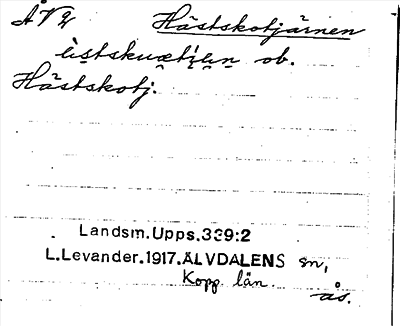 ÅV2 Hästskotjärnen
ob.
Hästskotj.
Landsm.Upps.339:2
L.Levander.1917.ÄLVDALENS sn,
Kopp. län.
ås.